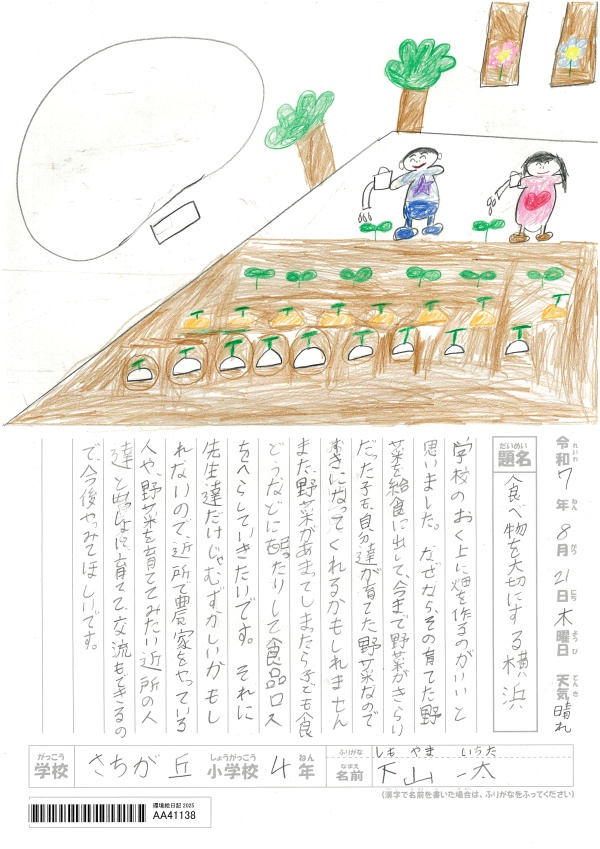 令和7年8月21日木曜日 天気晴れ
れいわ ねん がつ にち よう び てん き
だいめい
題名 食べ物を大切にする横浜
学校のおく上に畑を作るのがいいと
思いました。なぜなら、その育てた野
菜を給食に出して、今まで野菜がきらい
だった子も、自分達が育てた野菜なので
すきになってくれるかもしれません
また、野菜があまってしまったら子ども食
どうなどに配ったりして食品ロス
をへらしていきたいです。それに
先生達だけじゃむずかしいかもし
れないので、近所で農家をやっている
人や、野菜を育ててみたい近所の人
達と一しょに育てて、交流もできるの
で今後やってみてほしいです。
がっこう しょうがっこう ねん
学校 さちが丘 小学校 4年
ふりがな しも やま いちた
なまえ
名前 下山 一太
(漢字で名前を書いた場合は、ふりがなをふってください)
環境絵日記 2025
AA41138